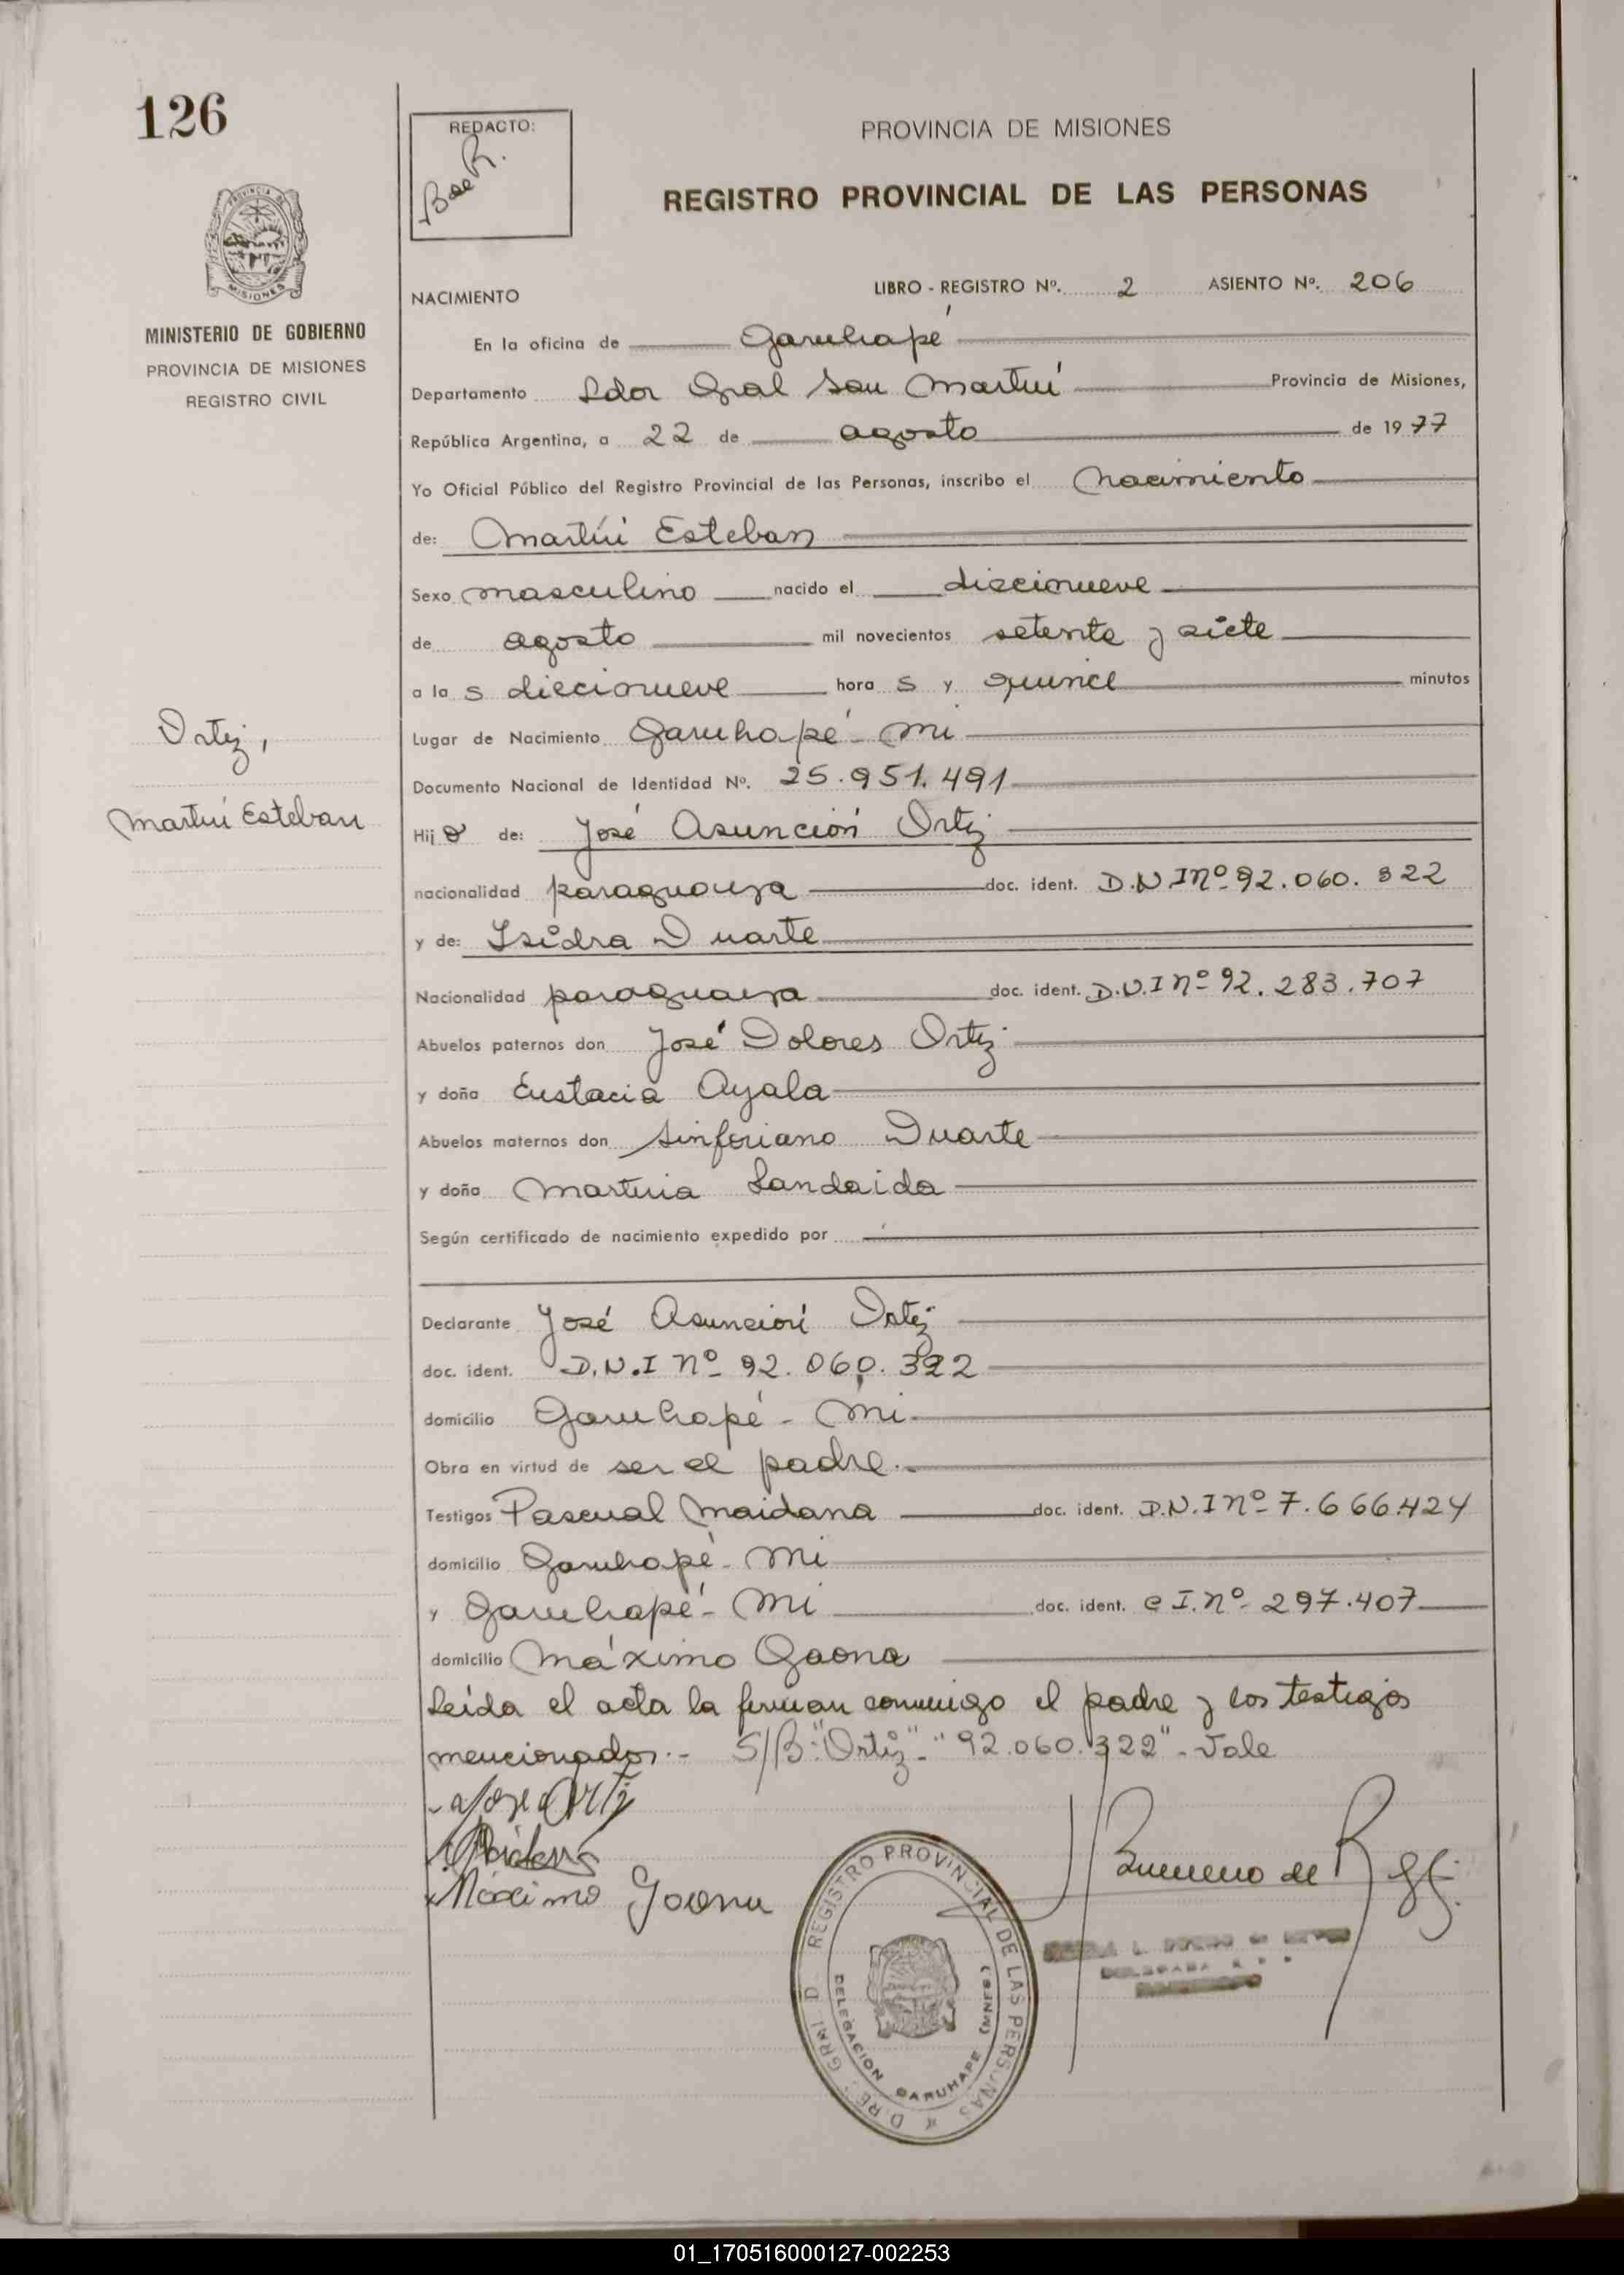 126
REDACTO:
BaeR.
PROVINCIA DE MISIONES
REGISTRO PROVINCIAL DE LAS PERSONAS
MISIONES
MINISTERIO DE GOBIERNO
PROVINCIA DE MISIONES
REGISTRO CIVIL
NACIMIENTO
LIBRO - REGISTRO Nº. 2 ASIENTO Nº. 206
En la oficina de Garuhapé
Departamento Ldor Gral San Martín Provincia de Misiones,
República Argentina, a 22 de agosto de 1977
Yo Oficial Público del Registro Provincial de las Personas, inscribo el Nacimiento
de: Martín Esteban
Sexo masculino nacido el diecinueve
de agosto mil novecientos setenta y siete
a la s diecinueve hora s y quince minutos
Ortiz,
Martín Esteban
Lugar de Nacimiento Garuhapé - Mi
Documento Nacional de Identidad Nº. 25.951.491
Hij o de: José Asunción Ortiz
nacionalidad paraguaya doc. ident. D.N.I Nº 92.060.322
y de: Isidra Duarte
Nacionalidad paraguaya doc. ident. D.N.I Nº 92.283.707
Abuelos paternos don José Dolores Ortiz
y doña Eustacia Ayala
Abuelos maternos don Sinforiano Duarte
y doña Martina Landaida
Según certificado de nacimiento expedido por
Declarante José Asunción Ortiz
doc. ident. D.N.I Nº 92.060.322
domicilio Garuhapé - Mi
Obra en virtud de ser el padre.-
Testigos Pascual Maidana doc. ident. D.N.I Nº 7.666.424
domicilio Garuhapé - Mi
y Garuhapé - Mi doc. ident. C I. Nº 297.407
domicilio Máximo Gaona
Leida el acta la firman conmigo el padre y los testigos
mencionados.- S/B "Ortiz" - "92.060.322" - Vale
Jose Ortiz
Maximo Gaona
REGISTRO PROVINCIAL DE LAS PERSONAS
DELEGACION GARUHAPE (MNES)
01_170516000127-002253